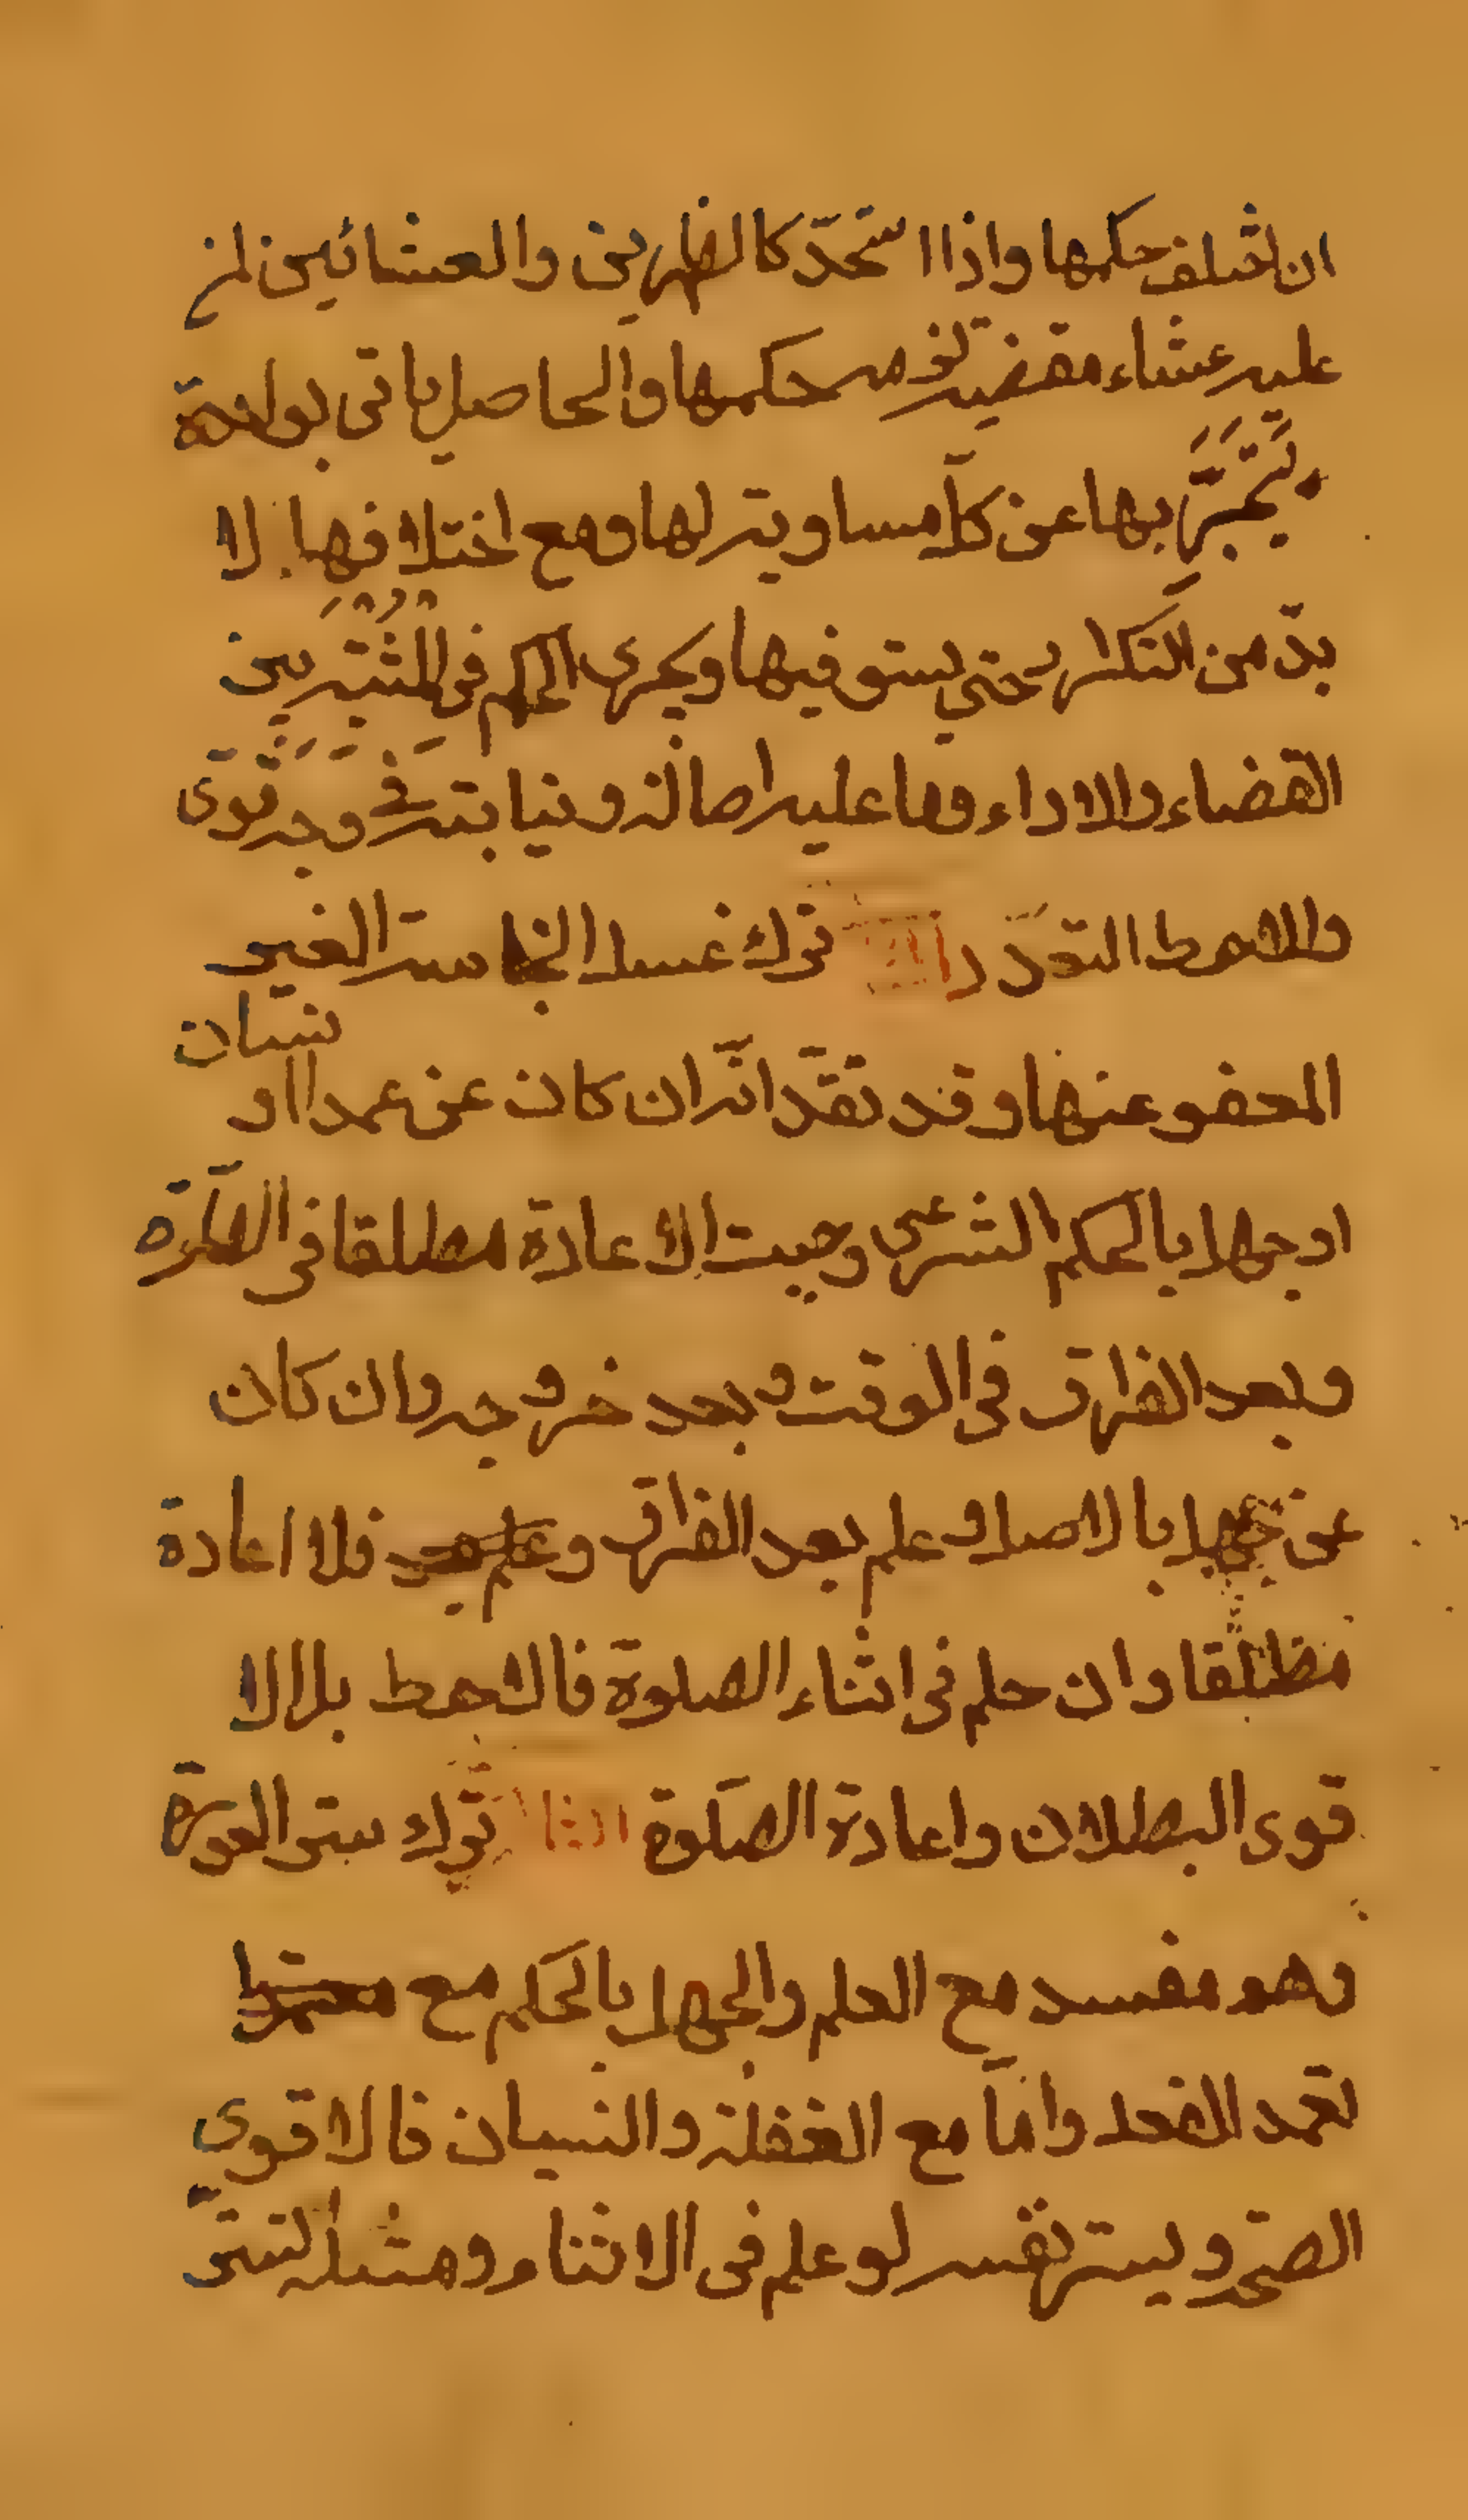 ان اختلف حكمها واذا اتحد كالظهرين والعشائين لمن
عليه عشاء مقضية لزمه حكمها والحاصل ياتى بواحدة
يجتزى بها عن كل مساوية لها ومع اختلافها لا
بدّ من التكرار حتى يستوفيها ويجرى الحكم فى
القضاء والاداء وما عليه اصالة ونيابة فى وجه قوى
والاحوط التعدد ترك غسل النجاسة الغير
المعفو عنها وقد تقدم انه ان كان عن عمد او نسيان
او جهل بالحكم الشرعى وجبت الاعادة مطلقا فى الصلوة
وبعد الفراق فى الوقت وبعد خروجه وان كان
عن جهل بالاصل وعلم بعد الفراق فلا اعادة
مطلقا وان علم فى اثناء الصلوة فالاحوط بل الا
قوى البطلان واعادة الصلوة ترك ستر العورة
وهو مفسد مع العلم والجهل بالحكم مع
تعمد الفعل وامّا مع الغفلة والنسيان فالاقوى
الصحة ويستر نفسه لو علم فى الاثناء ومثله